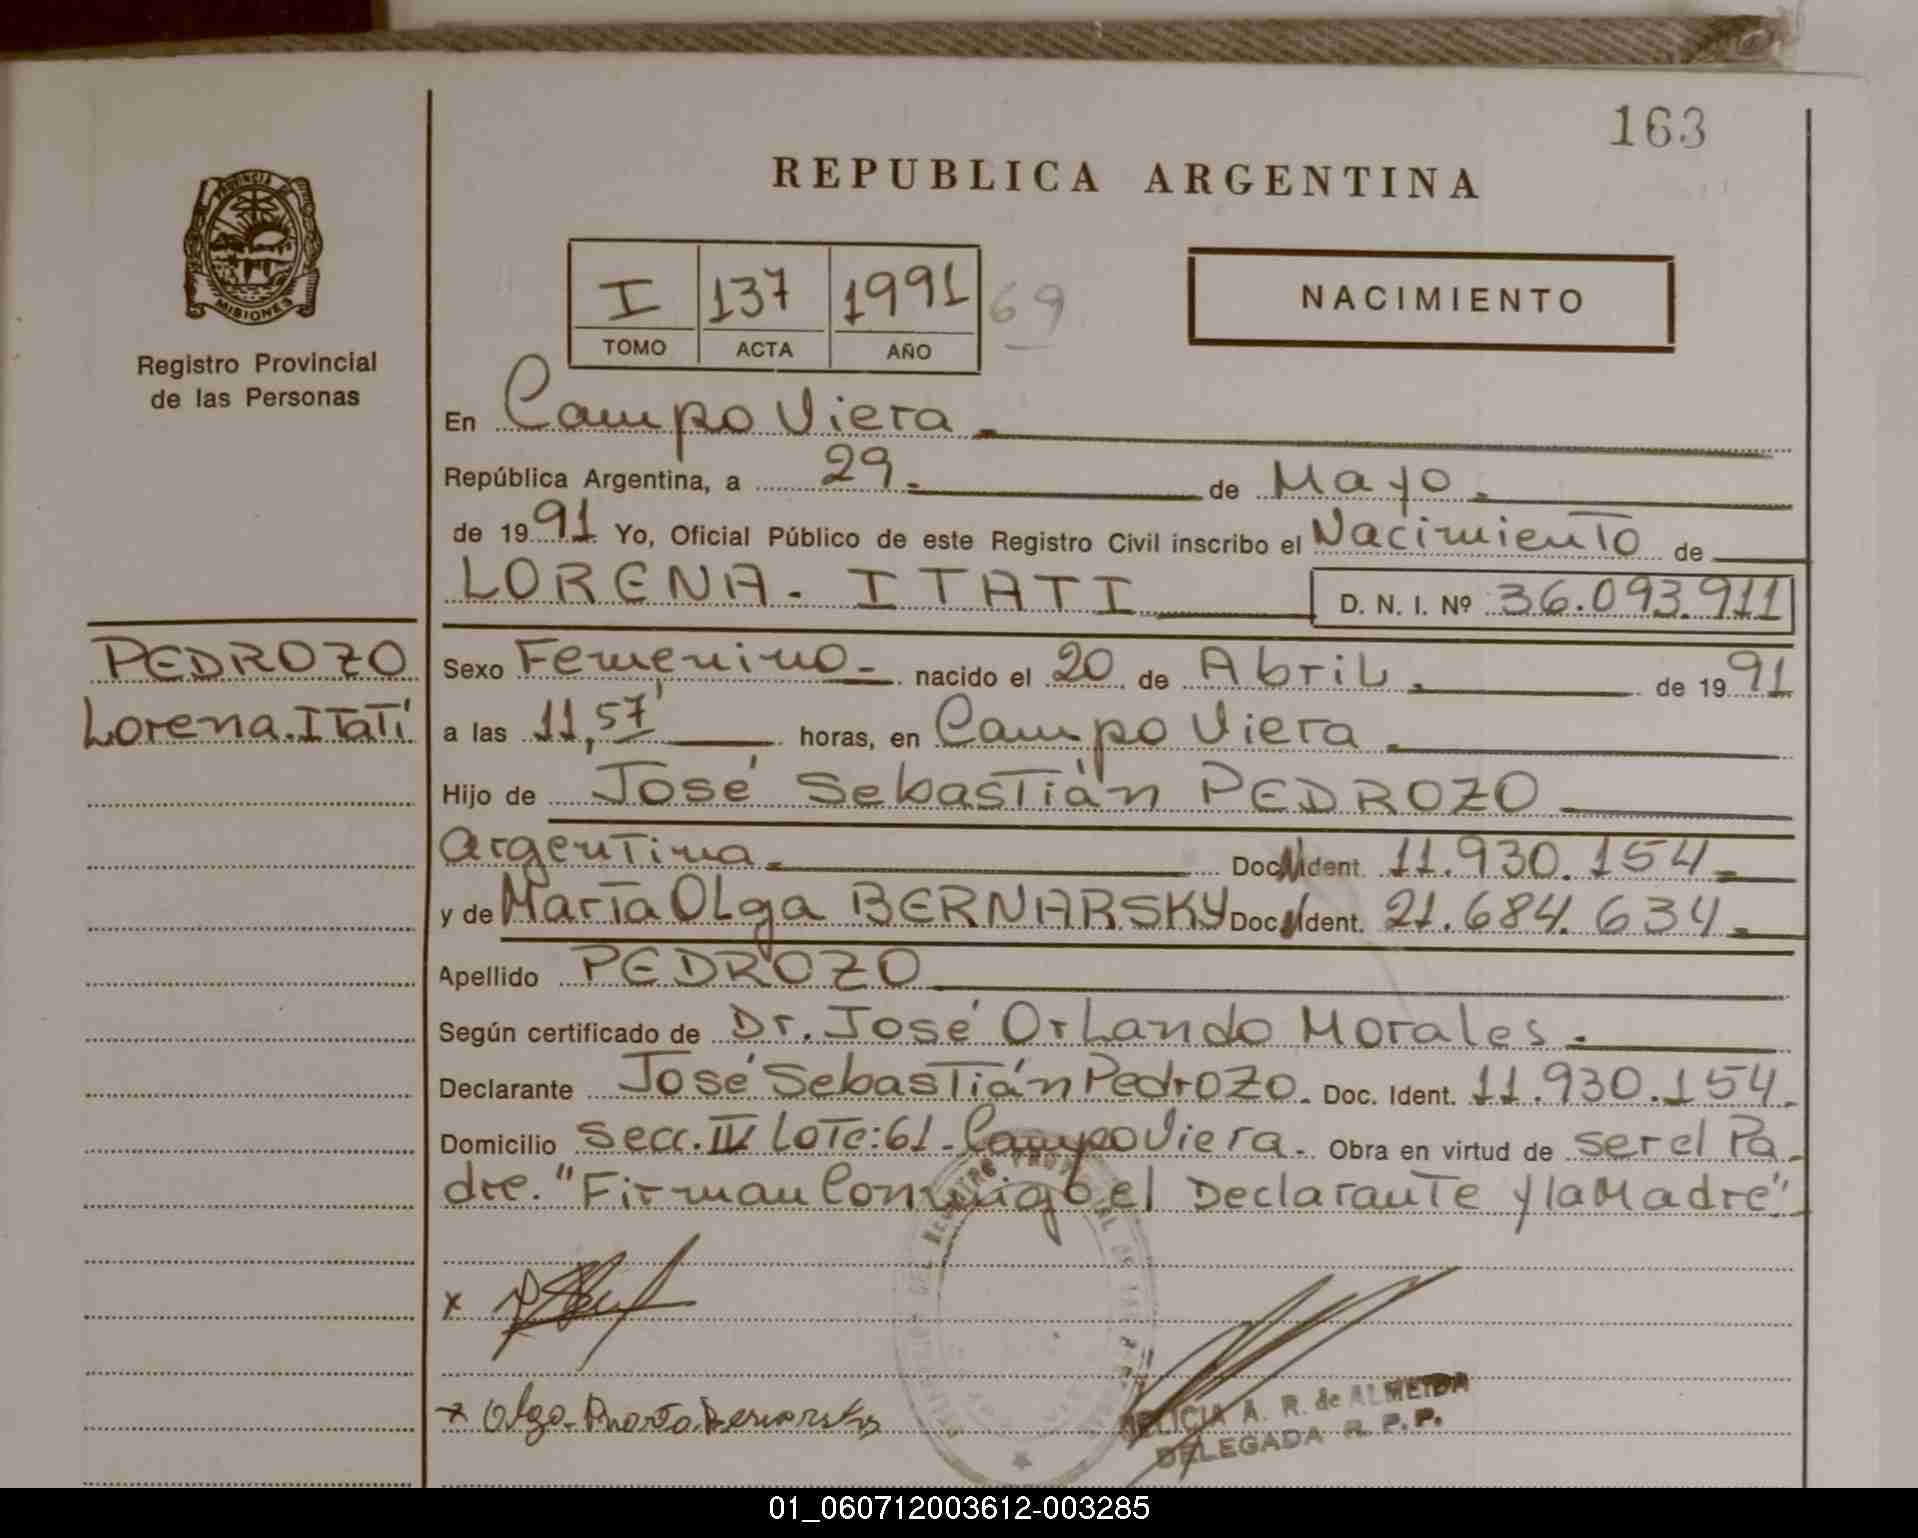 163
REPUBLICA ARGENTINA
PROVINCIA DE
MISIONES
I 137 1991 69
TOMO ACTA AÑO
NACIMIENTO
Registro Provincial
de las Personas
En Campo Viera
República Argentina, a 29 de Mayo
de 1991 Yo, Oficial Público de este Registro Civil inscribo el Nacimiento de
LORENA - ITATI D. N. I. Nº 36.093.911
PEDROZO
Lorena. Itatí
Sexo Femenino nacido el 20 de Abril de 1991
a las 11,57' horas, en Campo Viera
Hijo de José Sebastián PEDROZO
Argentina Doc. Ident. 11.930.154
y de María Olga BERNARSKY Doc. Ident. 21.684.634
Apellido PEDROZO
Según certificado de Dr. José Orlando Morales
Declarante José Sebastián Pedrozo. Doc. Ident. 11.930.154
Domicilio Secc. IV Lote: 61 - Campo Viera. Obra en virtud de ser el Pa
dre. "Firman Conmigo el Declarante y la Madre"
x
x Olga
A. R. de ALMEIDA
DELEGADA R. P. P.
01_060712003612-003285